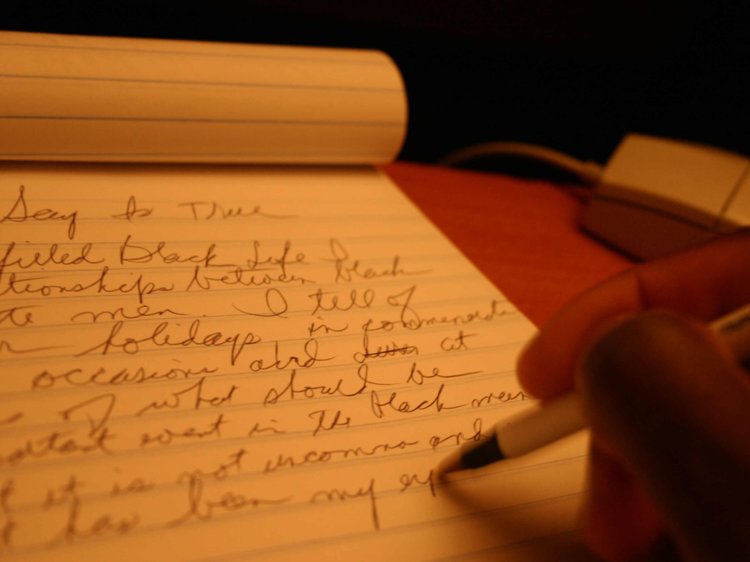 Say Is True
filled Black Life I
tionships between black
te men. I tell of
holidays in commemorat
occasions and at
of what should be
ortant event in the black men
it is not uncommo and
t has been my ex